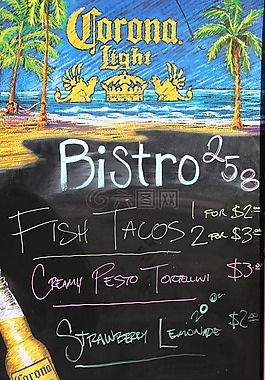 Corona
Light
Bistro 258
FISH TACOS 1 FOR $2.00
2 FOR $3.00
CREAMY PESTO TORTELLINI $3.00
STRAWBERRY LEMONADE $2.00
Corona